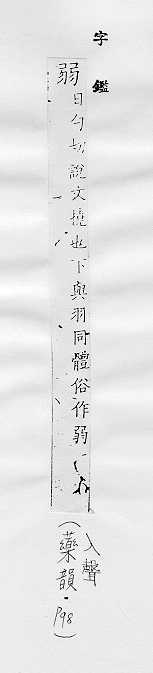 字鑑
弱日勺切說文撓也下與羽同體俗作弱
入聲
(藥韻·P98)